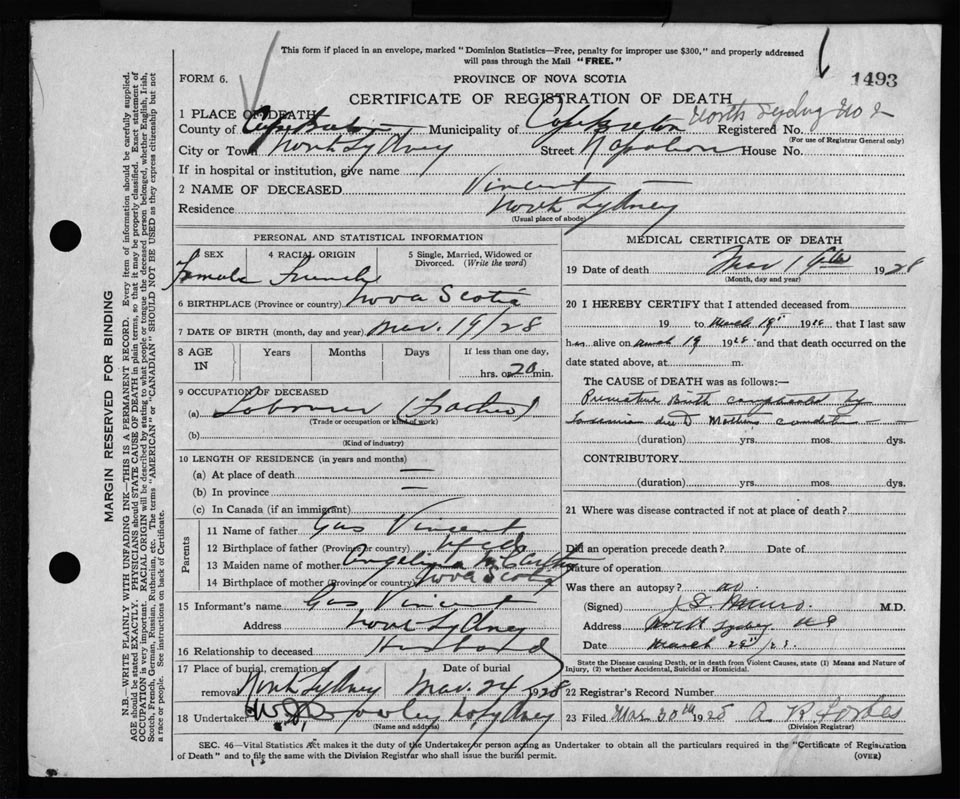 This form if placed in an envelope, marked "Dominion Statistics—Free, penalty for improper use $300," and properly addressed
will pass through the Mail "FREE."
FORM 6.
PROVINCE OF NOVA SCOTIA
1493
CERTIFICATE OF REGISTRATION OF DEATH
North Sydney No 2
1 PLACE OF DEATH
County of Cape Breton Municipality of Cape Breton Registered No.
(For use of Registrar General only)
City or Town North Sydney Street Napoleon House No.
If in hospital or institution, give name
2 NAME OF DECEASED Vincent
Residence North Sydney
(Usual place of abode)
PERSONAL AND STATISTICAL INFORMATION
3 SEX 4 RACIAL ORIGIN 5 Single, Married, Widowed or
Divorced. (Write the word)
Female French
6 BIRTHPLACE (Province or country) Nova Scotia
7 DATE OF BIRTH (month, day and year) Mar. 19/28
8 AGE Years Months Days If less than one day,
IN hrs. or 20 min.
9 OCCUPATION OF DECEASED
(a) Labourer (Father)
(Trade or occupation or kind of work)
(b)
(Kind of industry)
10 LENGTH OF RESIDENCE (in years and months)
(a) At place of death —
(b) In province —
(c) In Canada (if an immigrant)
Parents
11 Name of father Gus Vincent
12 Birthplace of father (Province or country) Nfld
13 Maiden name of mother Angelina
14 Birthplace of mother (Province or country) Nova Scotia
15 Informant's name Gus Vincent
Address North Sydney
16 Relationship to deceased Husband
17 Place of burial, cremation or Date of burial
removal North Sydney Mar. 24 1928
18 Undertaker No Sydney
(Name and address)
MEDICAL CERTIFICATE OF DEATH
19 Date of death Mar 19th 1928
(Month, day and year)
20 I HEREBY CERTIFY that I attended deceased from
19 to March 19th 1928 that I last saw
h alive on March 19 1928 and that death occurred on the
date stated above, at m.
The CAUSE of DEATH was as follows:—
Premature Birth complicated by
due to Mothers condition
(duration) yrs. mos. dys.
CONTRIBUTORY
(duration) yrs. mos. dys.
21 Where was disease contracted if not at place of death?
Did an operation precede death? Date of
Nature of operation
Was there an autopsy? no
(Signed) M.D.
Address North Sydney NS
Date March
State the Disease causing Death, or in death from Violent Causes, state (1) Means and Nature of
Injury, (2) whether Accidental, Suicidal or Homicidal.
22 Registrar's Record Number
23 Filed Mar 30th 1928 A. R. Forbes
(Division Registrar)
SEC. 46—Vital Statistics Act makes it the duty of the Undertaker or person acting as Undertaker to obtain all the particulars required in the "Certificate of Registration
of Death" and to file the same with the Division Registrar who shall issue the burial permit. (OVER)
MARGIN RESERVED FOR BINDING
N.B.—WRITE PLAINLY WITH UNFADING INK—THIS IS A PERMANENT RECORD. Every item of information should be carefully supplied.
AGE should be stated EXACTLY. PHYSICIANS should STATE CAUSE OF DEATH in plain terms, so that it may be properly classified. Exact statement of
OCCUPATION is very important. RACIAL ORIGIN will be described by stating to what people or tongue the deceased person belonged, whether English, Irish,
Scotch, French, German, Russian, Ruthenian, etc. The terms "AMERICAN" or "CANADIAN" SHOULD NOT BE USED as they express citizenship but not
a race or people. See instructions on back of Certificate.